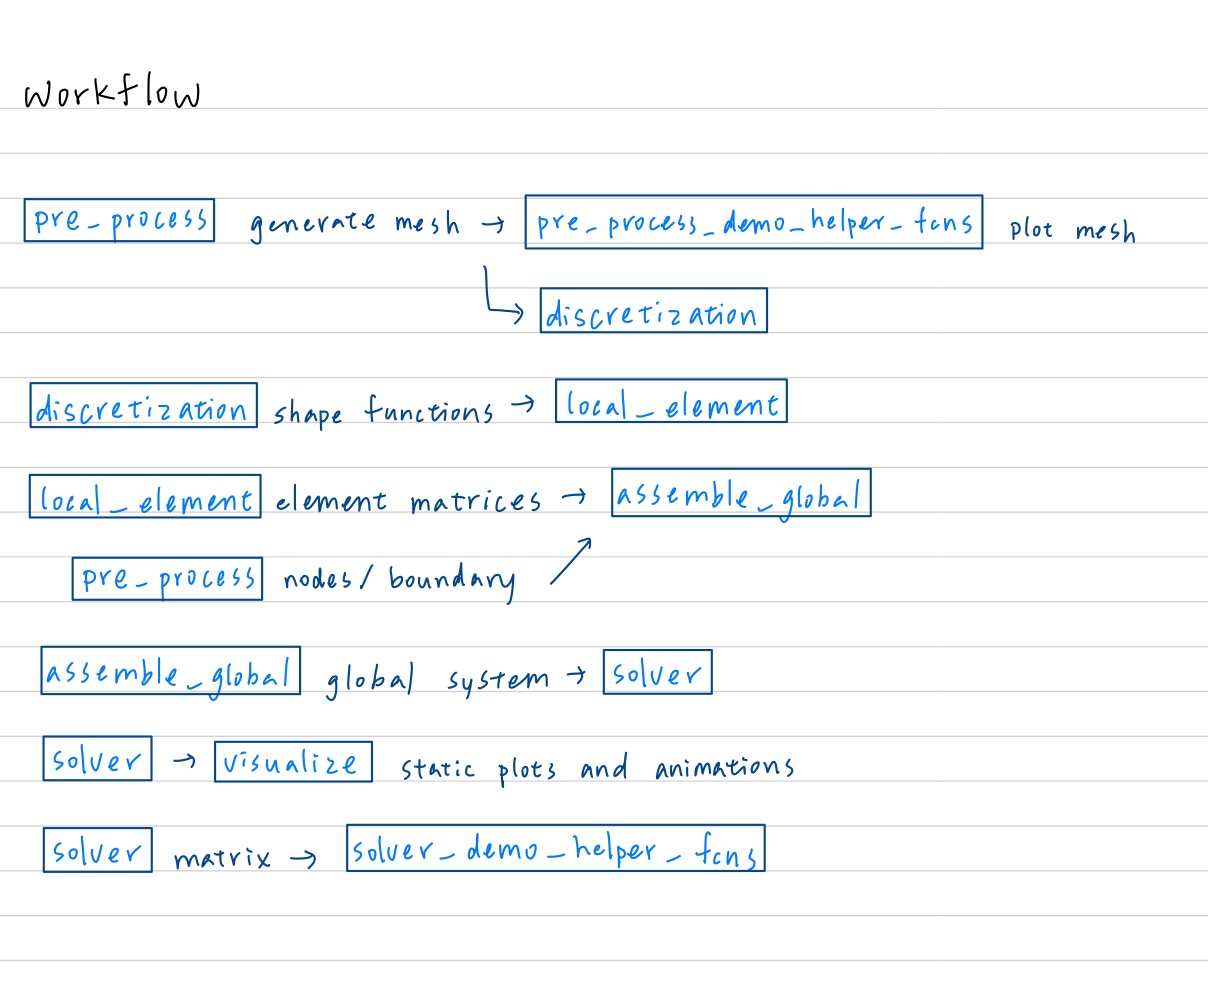 workflow
pre_process generate mesh → pre_process_demo_helper_fcns plot mesh
↳ discretization
discretization shape functions → local_element
local_element element matrices → assemble_global
pre_process nodes / boundary ↗
assemble_global global system → solver
solver → visualize static plots and animations
solver matrix → solver_demo_helper_fcns